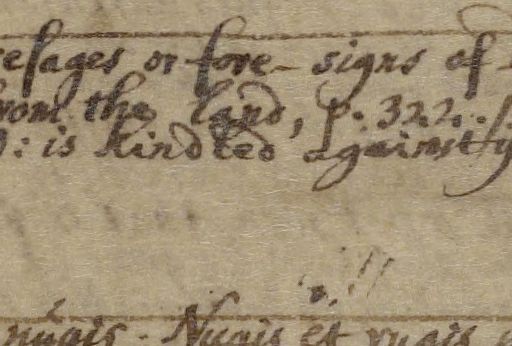 esages or fore-signs of
from the land, p. 322.
: is kindled against
nugis. Nugis et rugis